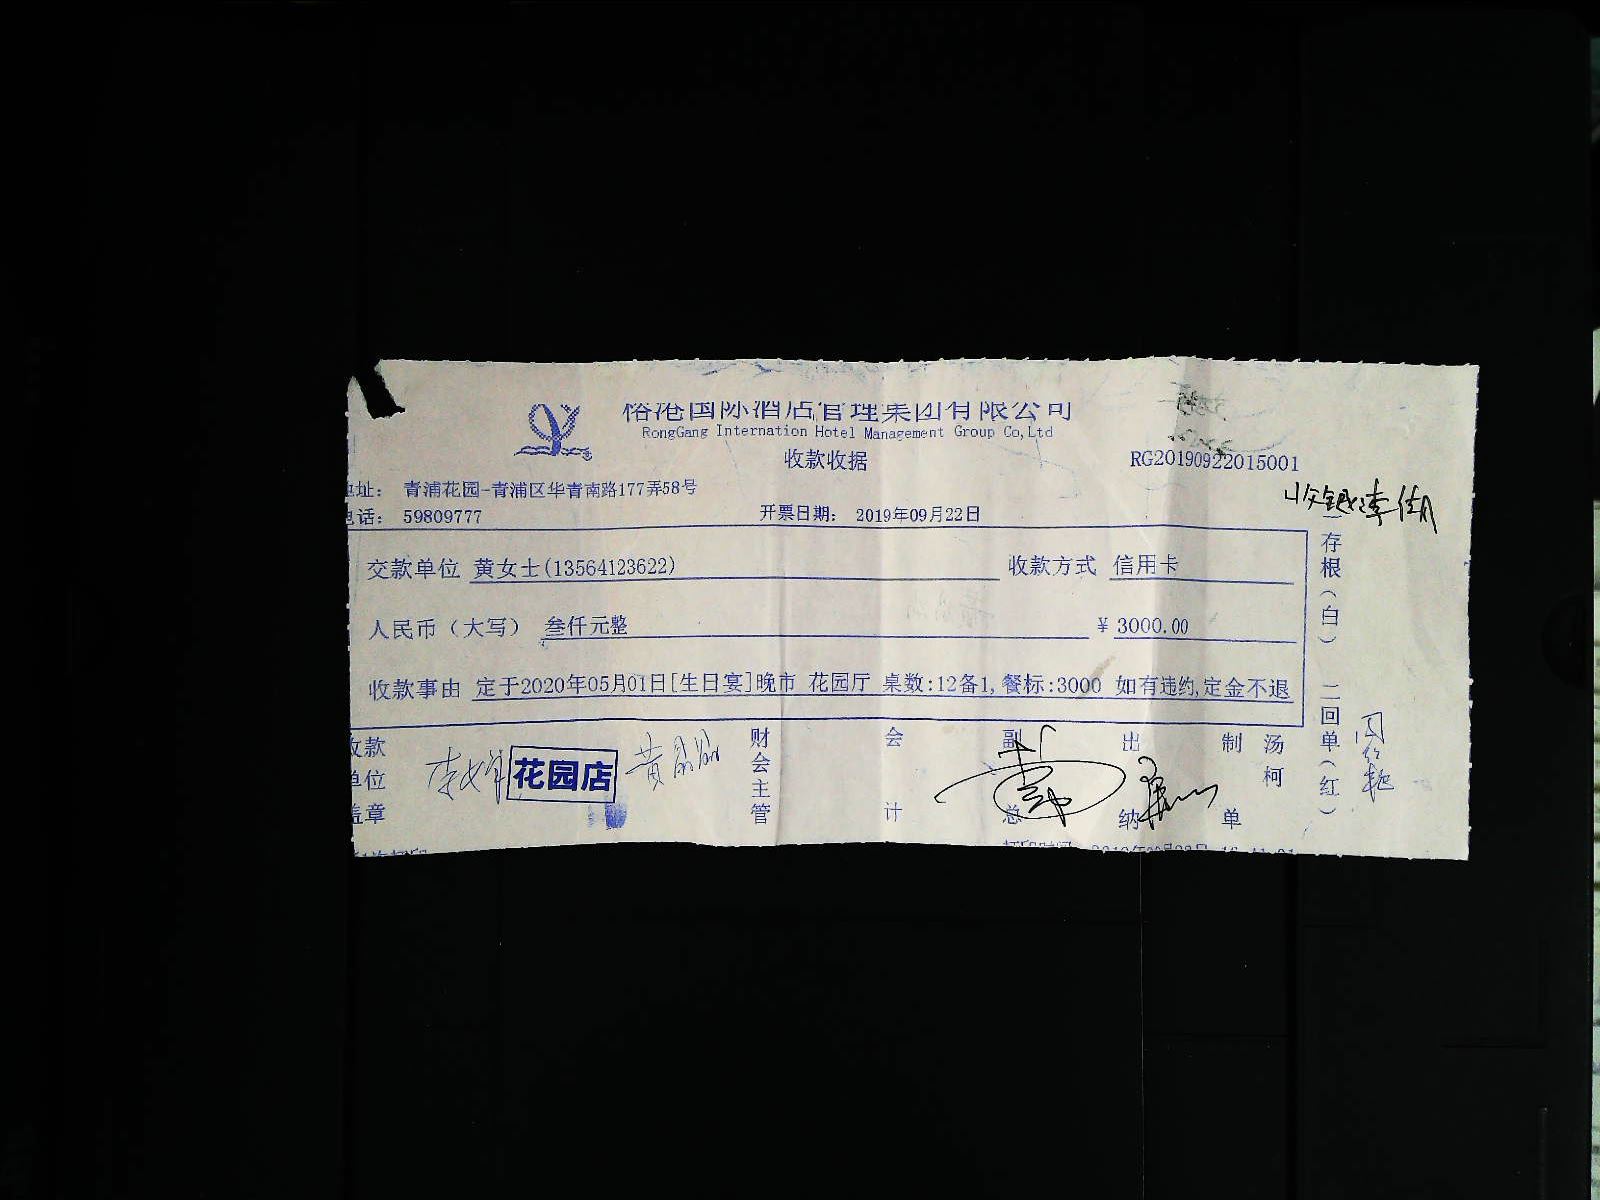 榕港国际酒店管理集团有限公司
RongGang Internation Hotel Management Group Co,Ltd
收款收据
RG20190922015001
地址： 青浦花园-青浦区华青南路177弄58号
收银:李倩
电话： 59809777
开票日期： 2019年09月22日
交款单位 黄女士(13564123622)
收款方式 信用卡
人民币（大写） 叁仟元整
¥ 3000.00
收款事由 定于2020年05月01日[生日宴]晚市 花园厅 桌数:12备1,餐标:3000 如有违约,定金不退
存根（白） 二回单（红）
收款单位盖章
花园店
财会主管
会计
副总
出纳
制单
汤柯